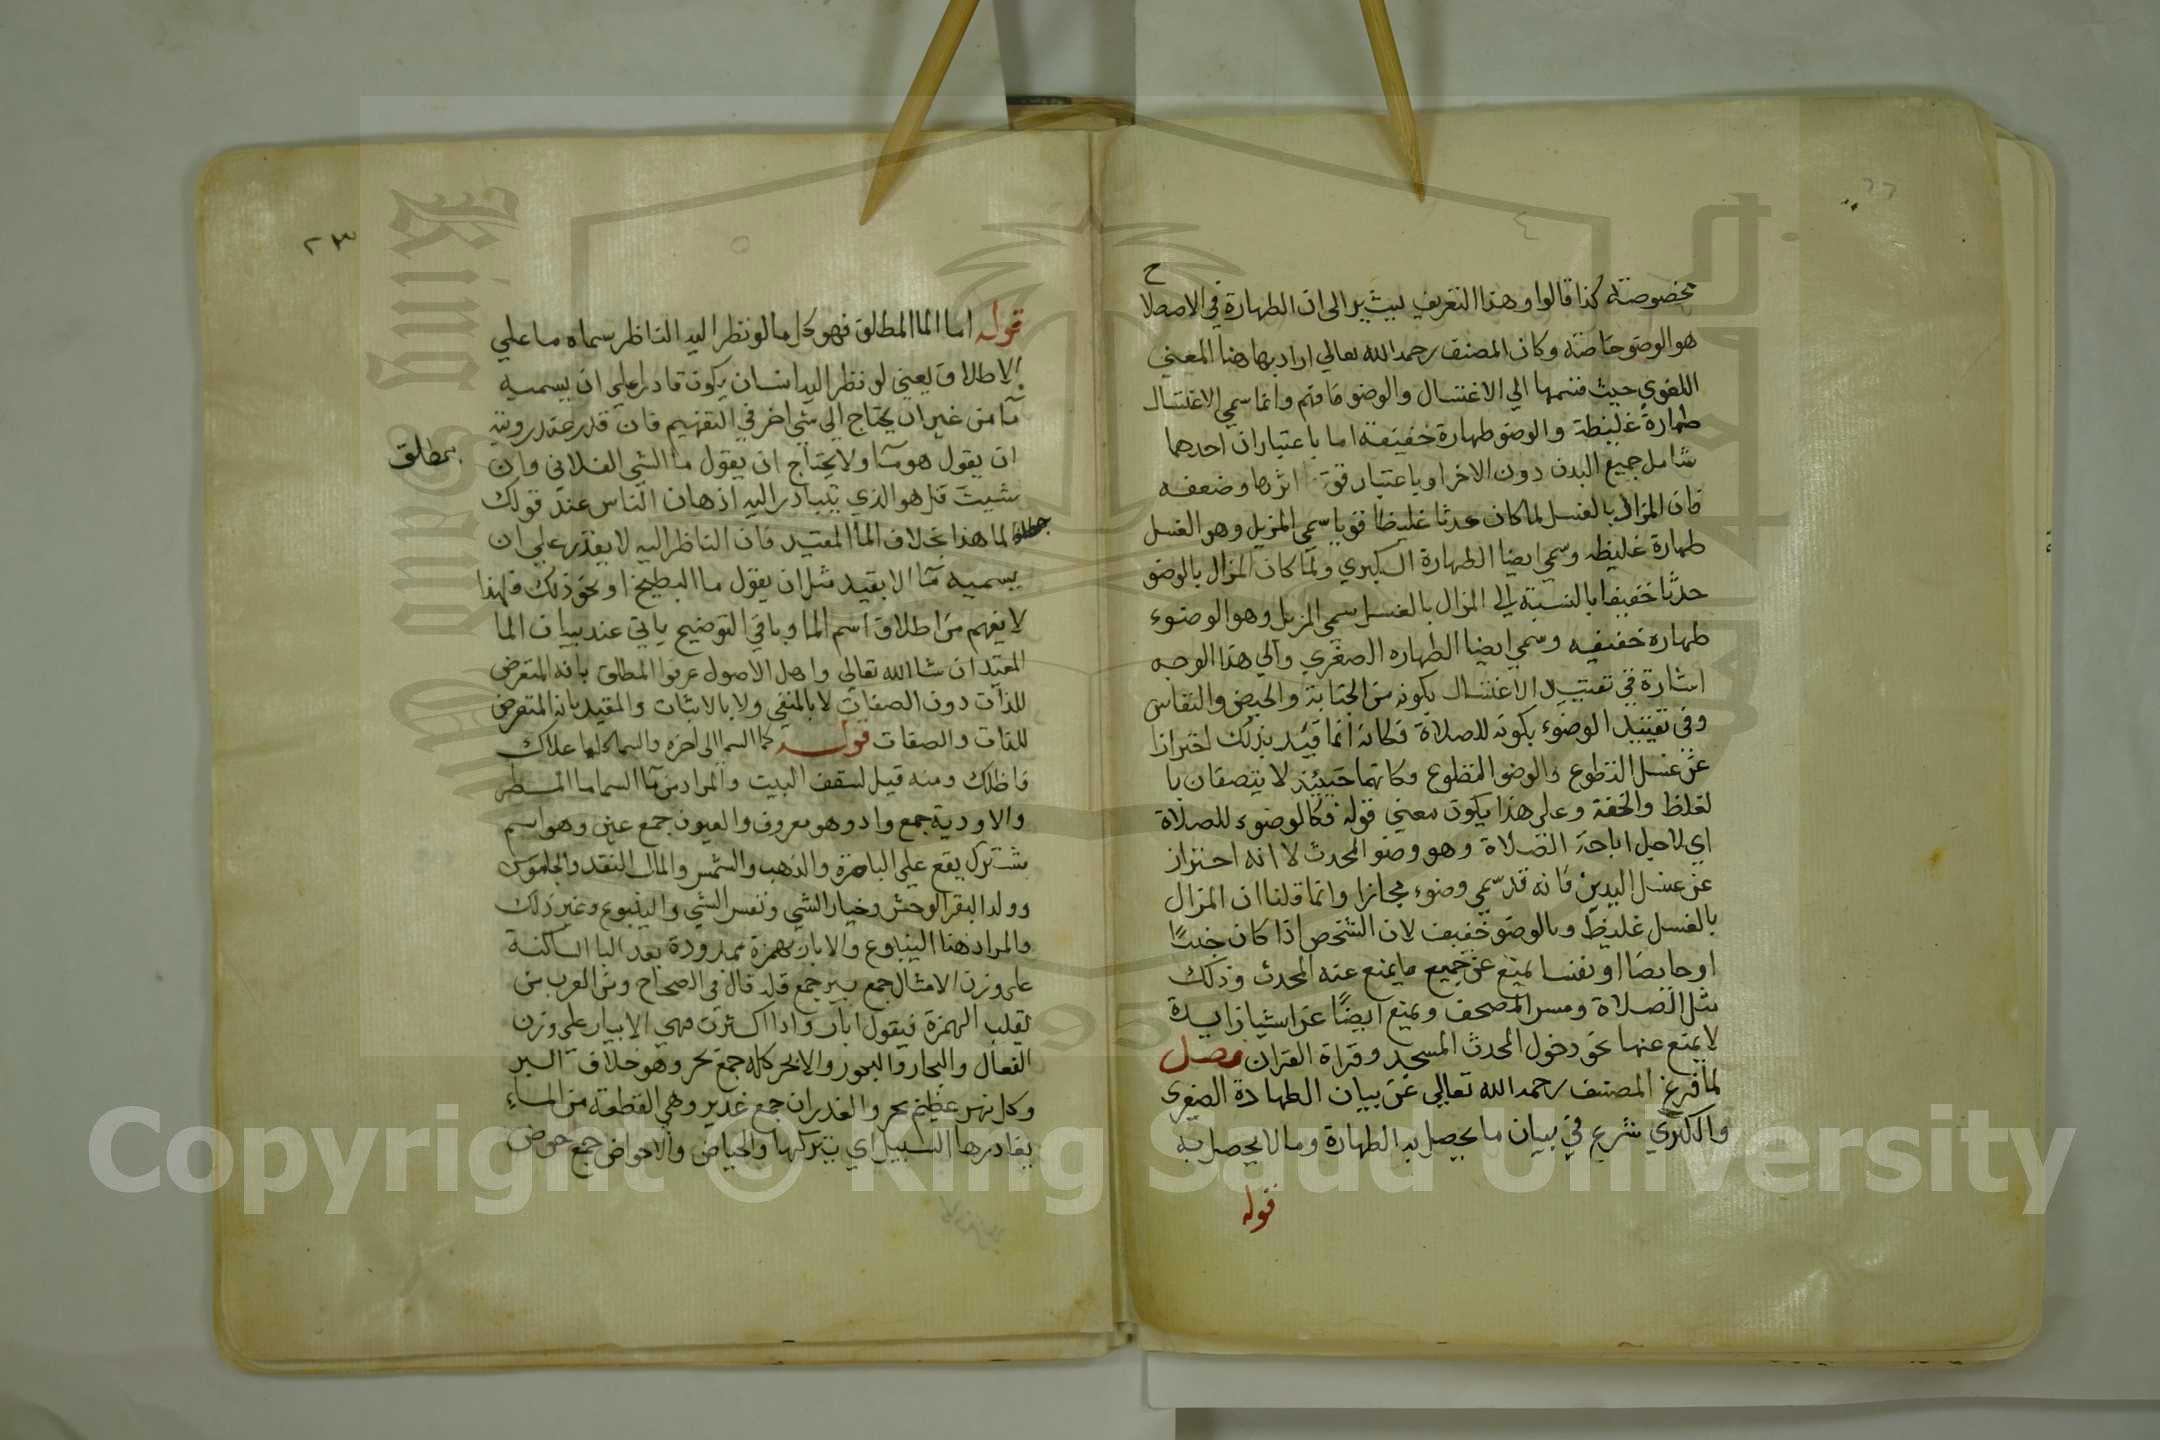 ٢٢
مخصوصة كذا قالوا وهذا التعريف يشير الى ان الطهارة في الاصطلا
ح
هو الوضو خاصة وكان المصنف رحمه الله تعالي اراد بها هنا المعني
اللغوي حيث قسمها الي الاغتسال والوضو فافهم وانما سمي الاغتسال
طهارة غليظة والوضو طهارة خفيفة اما باعتبار ان احدهما
شامل جميع البدن دون الاخر او باعتبار قوة اثرها وضعفه
فان المزال بالغسل لما كان حدثا غليظا قويا سمي المزيل وهو الغسل
طهارة غليظه وسمي ايضا الطهارة الكبري ولما كان المزال بالوضو
حدثا خفيفا بالنسبة الي المزال بالغسل سمي المزيل وهو الوضوء
طهاره خفيفه وسمي ايضا الطهاره الصغري والي هذا الوجه
اشارة في تقييد الاغتسال بكونه من الجنابة والحيض والنفاس
وفي تقييد الوضوء بكونه للصلاة فكانه انما قيد بذلك احترازا
عن غسل التطوع والوضو المتطوع وكانهما حينيذ لا يتصفان با
لغلظ والخفة وعلى هذا يكون معني قوله فكالوضوء للصلاة
اي لاجل اباحة الصلاة وهو وضو المحدث لا انه احتراز
عن غسل اليدين فانه قد سمي وضوء مجازا وانما قلنا ان المزال
بالغسل غليظ وبالوضو خفيف لان الشخص اذا كان جنبا
او حايضا او نفسا يمنع عن جميع ما يمنع عنه المحدث وذلك
مثل الصلاة ومس المصحف ويمنع ايضا عن اشيا زايدة
لا يمنع عنها نحو دخول المحدث المسجد وقراة القران فصل
لما فرغ المصنف رحمه الله تعالي عن بيان الطهارة الصغري
والكبري شرع في بيان ما يحصل به الطهارة وما لا يحصل به
قوله
٢٣
قوله اما الما المطلق فهو كل ما لو نظر اليه الناظر سماه ما علي
الاطلاق يعني لو نظر اليه انسان يكون قادرا علي ان يسميه
ما من غير ان يحتاج الي شي اخر في التفهيم فان قدر عند رويته
ان يقول هو ما ولا يحتاج ان يقول ما الشي الفلاني وان
بمطلق
شيت قل هو الذي يتبادر اليه اذهان الناس عند قولك
لما هذا بخلاف الما المقيد فان الناظر اليه لا يقدر علي ان
يسميه ما الا بقيد مثل ان يقول ما البطيخ او نحو ذلك فلهذا
لا يفهم من اطلاق اسم الما وباقي التوضيح ياتي عند بيان الما
المقيد ان شا الله تعالي واهل الاصول عرفوا المطلق بانه المتعرض
للذات دون الصفات لا بالنفي ولا بالاثبات والمقيد بانه المتعرض
للذات والصفات قوله كما السما الى اخره والسما كلما علاك
فاظلك ومنه قيل لسقف البيت والمراد من ما السما ما المطر
والاودية جمع واد وهو معروف والعيون جمع عين وهو اسم
مشترك يقع علي الباصرة والذهب والشمس والمال النقد والجاموس
وولد البقر الوحش وخيار الشي ونفس الشي والينبوع وغير ذلك
والمراد هنا الينبوع والابار بهمزة ممدودة بعد البا الساكنة
على وزن الامثال جمع بير جمع قلة قال في الصحاح ومن العرب من
يقلب الهمزة فيقول ابار واذا كثرت فهي الابيار علي وزن
الفعال والبحار والبحور والابحر كله جمع بحر وهو خلاف البر
وكل نهر عظيم بحر والغدران جمع غدير وهي القطعة من الماء
يغادرها السيل اي يتركها والحياض والاحواض جمع حوض
Copyright © King Saud University
King Saud University
1957